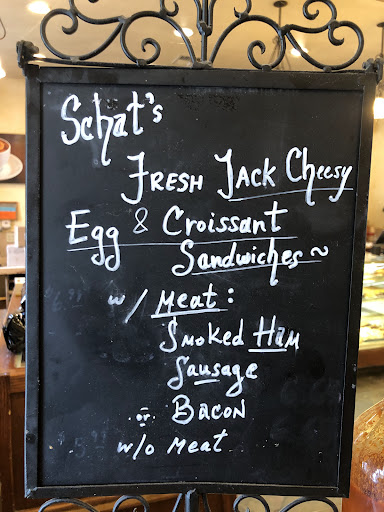 Schat's
Fresh Jack Cheesy
Egg & Croissant
Sandwiches ~
w/ Meat:
Smoked Ham
Sausage
or Bacon
w/o Meat